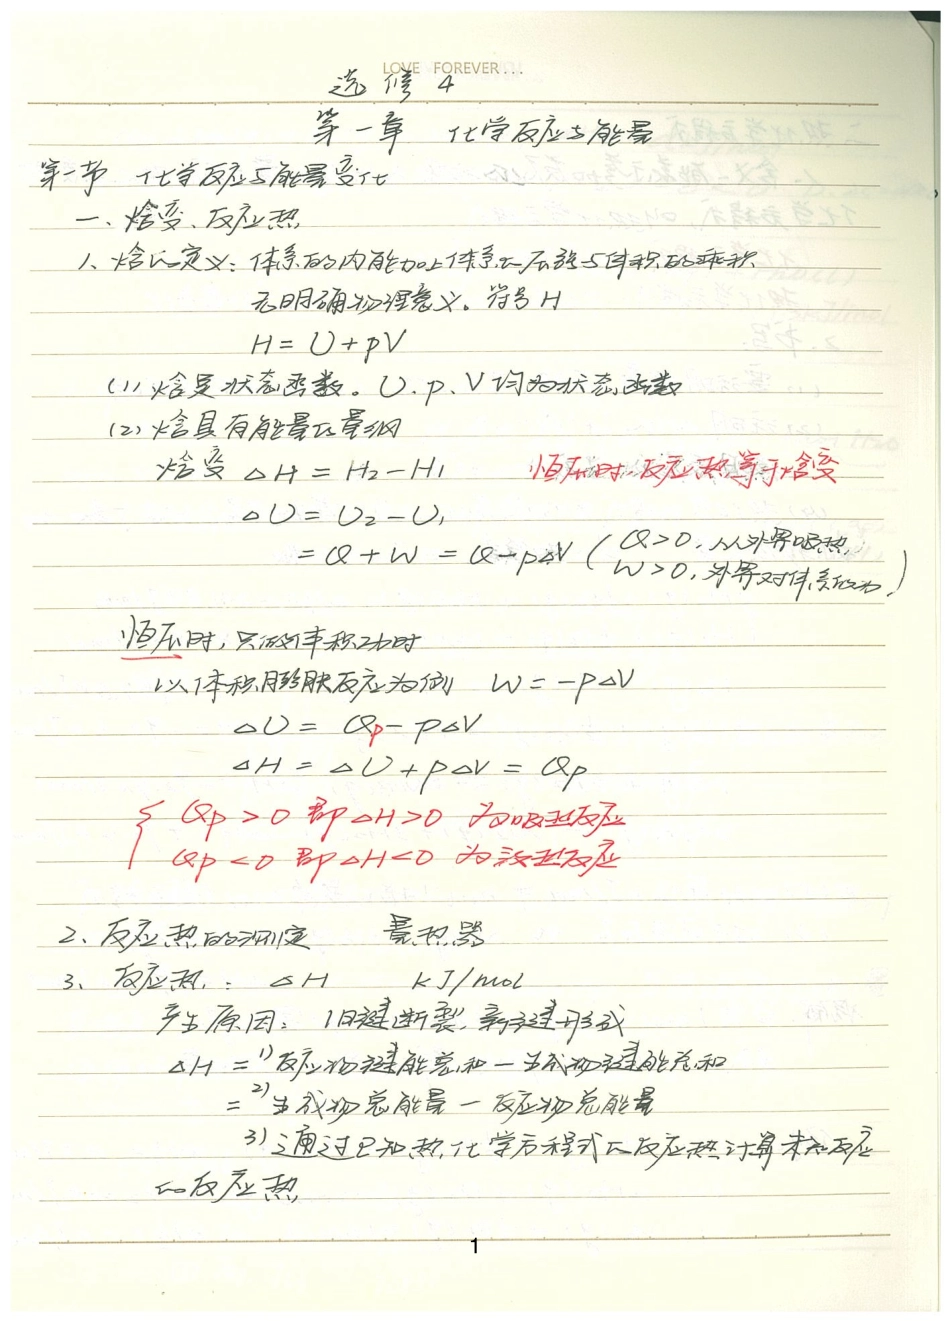 LOVE FOREVER...
选修4
第一章 化学反应与能量
第一节 化学反应与能量变化
一、焓变、反应热
1、焓的定义：体系的内能加上体系的压强与体积的乘积
无明确物理意义。符号H
H=U+pV
(1)焓是状态函数。U、p、V均为状态函数
(2)焓具有能量的量纲
焓变 △H=H₂-H₁ 恒压时，反应热等于焓变
△U=U₂-U₁
=Q+W=Q-p△V(Q>0,从外界吸热,
W>0,外界对体系做功,)
恒压时，只做体积功时
以体积膨胀反应为例 W=-p△V
△U=Qp-p△V
△H=△U+p△V=Qp
{Qp>0即△H>0为吸热反应
Qp<0即△H<0为放热反应
2、反应热的测定 量热器
3、反应热：△H kJ/mol
产生原因：旧键断裂、新键形成
△H=1)反应物键能总和-生成物键能总和
=2)生成物总能量-反应物总能量
3)通过已知热化学方程式的反应热计算未知反应
的反应热
1